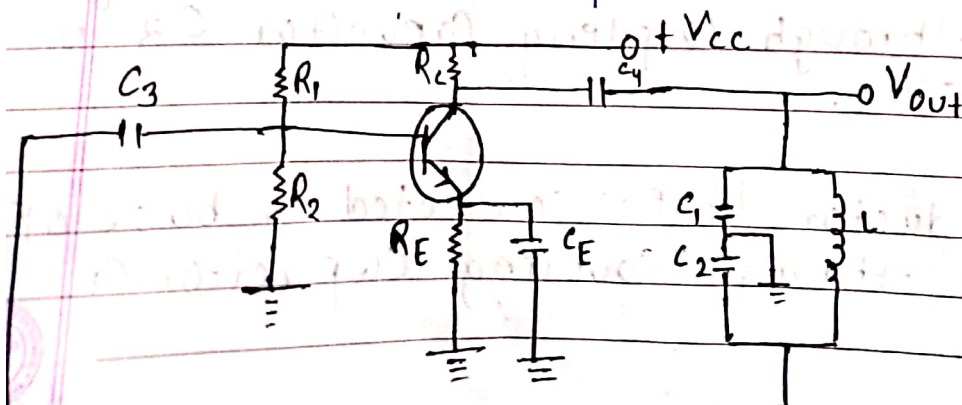 + Vcc
C3
R1
Rc
C4
Vout
R2
RE
CE
C1
C2
L